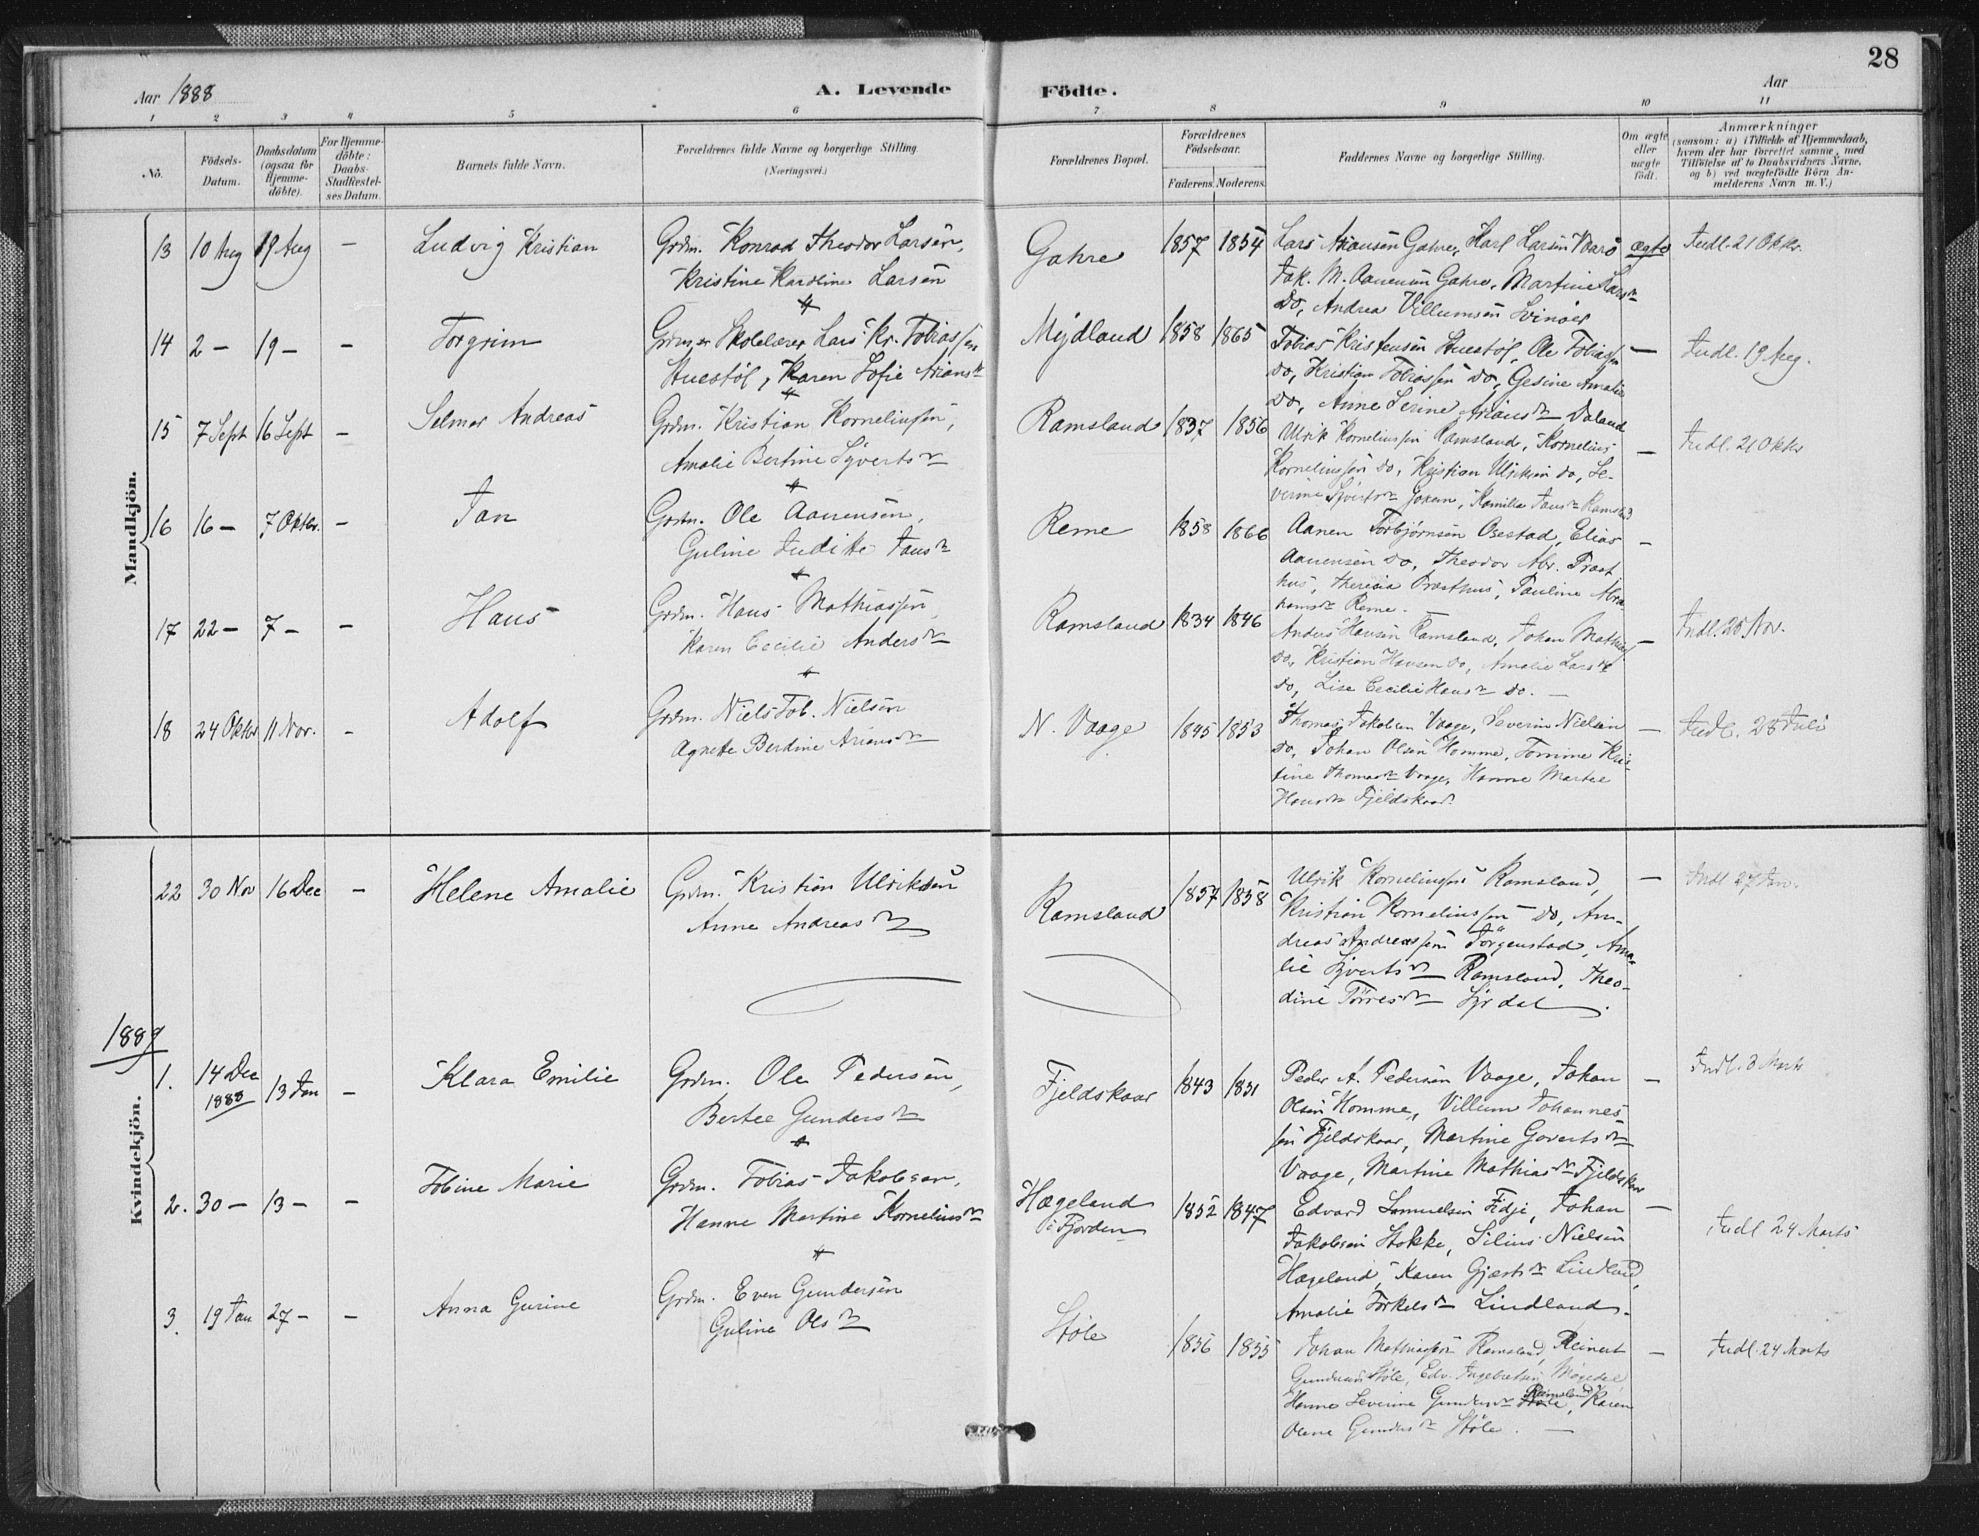 28
Aar 1888
A. Levende
Födte.
Aar
1 2 3 4 5 6 7 8 9 10 11
No.
Födsels-
Datum.
Daabsdatum
(ogsaa for
Hjemme-
döbte).
For Hjemme-
döbte:
Daabs-
Stadfæstel-
ses Datum.
Barnets fulde Navn.
Forældrenes fulde Navne og borgerlige Stilling.
(Næringsvei.)
Forældrenes Bopæl.
Forældrenes
Födselsaar.
Faderens. Moderens.
Faddernes Navne og borgerlige Stilling.
Om ægte
eller
uægte
födt.
Anmærkninger
(saasom: a) i Tilfælde af Hjemmedaab,
hvem der har forrettet samme, med
Tilföielse af to Daabsvidners Navne,
og b) ved uægtefödte Börn An-
melderens Navn m. V.)
Mandkjön.
13 10 Aug 19 Aug — Ludvig Kristian
Grdm. Konrad Theodor Larsen,
Kristine Karoline Larsen
Gahre 1857 1854
Lars Gahre, Karl Larsen
Jak. M. Aanensen Gahre, Martine Larsdr
Do, Andrea Villumsen Svinøer
ægte
Indl. 21 Oktr.
14 2 — 19 — — Torgrim
Grdm. og Skolelærer Lars Kr. Tobiassen
Stuestøl, Karen Sofie
Mydland 1858 1865
Tobias Kristensen Stuestøl, Ole Tobiassen
Do, Kristian Tobiassen Do, Gesine Amalie
Do, Anne Serine Daland
—
Indl. 19 Aug.
15 7 Sept 16 Sept — Selmer Andreas
Grdm. Kristian Korneliussen,
Amalie Bertine Syvertsdr
Ramsland 1837 1856
Ulrik Korneliussen Ramsland, Kornelius
Korneliussen do, Kristian Ulriksen do, Se-
verine Syvertsdr Kamilla Jansdr
—
Indl. 21 Oktr
16 16 — 7 Oktbr. — Jan
Grdm. Ole Aanensen,
Guline Judithe Jansdr
Reme 1858 1866
Aanen Torbjørnsen Osestad, Elias
Aanensen do, Theodor Abr. Præst
hus, Theresia Præsthus, Pauline Abra
hamsdr Reme.
—
17 22 — 7 — — Hans
Grdm. Hans Mathiassen,
Karen Cecilie Andersdr
Ramsland 1834 1846
Anders Hansen Ramsland, Johan Mathias
do, Kristian Hansen do, Amalie Larsdr
do, Lise Cecilie Hansdr do. —
—
Indl. 20 Nov.
18 24 Oktbr 11 Nov. — Adolf
Grdm. Niels Tob. Nielsen
Agnethe Berdine
N. Vaage 1845 1853
Thomas Jakobsen Vaage, Severin Nielsen
do, Johan Olsen Homme, Tomine Kris-
tine Thomasdr Vaage, Hanne Martee
Hansdr Fjeldskaar.
—
Indl. 28 Juli
Kvindekjön.
22 30 Nov 16 Dec — Helene Amalie
Grdm. Kristian Ulriksen
Anne Andreasdr
Ramsland 1857 1858
Ulrik Korneliussen Ramsland,
Kristian Korneliussen do, An-
dreas Andreassen Jörgenstad, Ama-
lie Syvertsdr Ramsland, Theo-
dine Tørresdr Syrdal.
—
Indl 27 Jan.
1889
1. 14 Dec
1888 13 Jan — Klara Emilie
Grdm. Ole Pedersen,
Bertee Gundersdr
Fjeldskaar 1843 1851
Peder A. Pedersen Vaage, Johan
Olsen Homme, Villum Johannes
sen Fjeldskaar, Martine Govertsdr
Vaage, Martine Mathiasdr Fjeldskaar
—
Indl. 3 Marts
2. 30 — 13 — — Tobine Marie
Grdm. Tobias Jakobsen,
Hanne Martine Korneliusdr
Hægeland
i Fjorden 1852 1847
Edvard Samuelsen Fidje, Johan
Jakobsen Stokke, Silius Nielsen
Hægeland, Karen Gjertsdr Lindland,
Amalie Torkelsdr Lindland.
—
Indl 24 Marts
3. 19 Jan 27 — — Anna Gurine
Grdm. Even Gundersen
Guline Olsdr
Støle 1856 1855
Johan Mathiassen Ramsland, Reinert
Gundersen Støle, Edv. Ingebretsen Møgedal,
Hanne Severine Gundersdr Ramsland, Karen
Olene Gundersdr Støle. —
—
Indl. 24 Marts